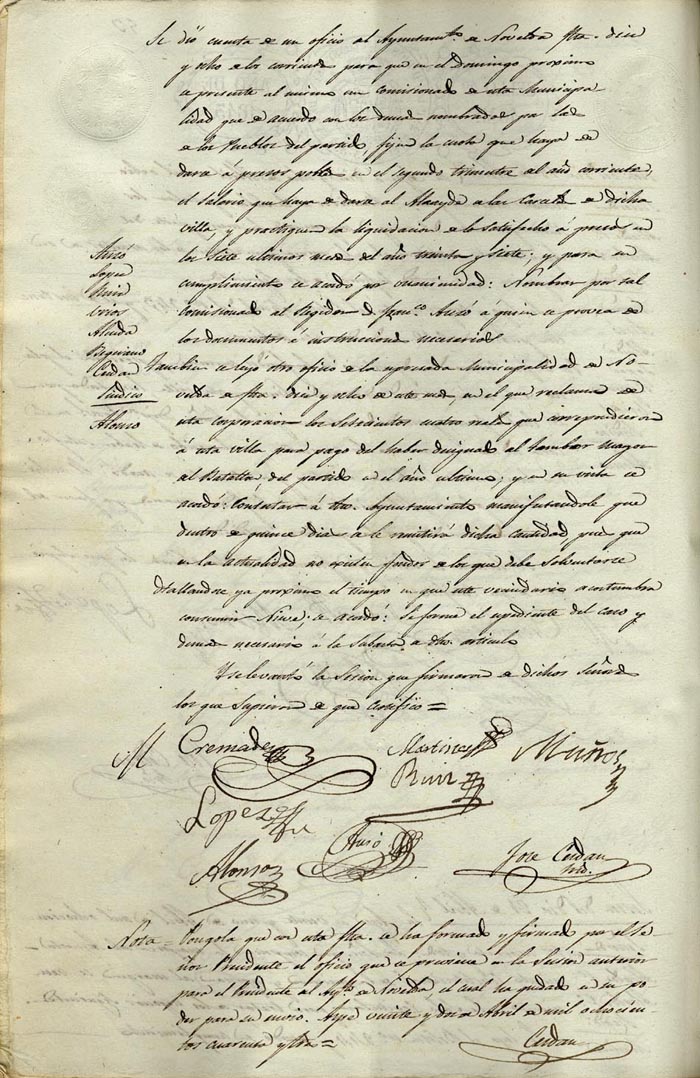 Se dió cuenta de un oficio al Ayuntamto. de Novelda fha. diez
y ocho de los corrientes para que en el Domingo proximo
se presente al mismo un Comisionado de esta Municipa
lidad que de acuerdo con los demas nombrados por las
de los Pueblos del partido, fijen la cuota que haya de
darse á presos pobres en el segundo trimestre al año corriente,
el salario que haya de darse al Alcayde a las Carceles de dicha
villa, y practiquen la liquidacion de lo satisfecho á presos en
los siete ultimos meses del año treinta y siete; y para su
cumplimiento se acordó por unanimidad: Nombrar por tal
Comisionado al Regidor D. Franco. Ausó á quien se provea de
los documentos é instrucciones necesarias
Ausó
Lopez
Ruiz
Almida
Cerdan
Sindico
Alonso
Tambien se leyó otro oficio de la espresada Municipalidad de No-
velda de fha. diez y ocho de este mes en el que reclama de
esta corporacion los Setecientos cuatro reales que correspondieron
á esta villa para pago del haber designado al tambor mayor
al Batallon del partido en el año ultimo; y en su vista se
acordó: Contestar á dho. Ayuntamiento manifestandole que
dentro de quince dias se le remitirá dicha cantidad, pues que
en la actualidad no existen fondos de los que debe Solventarse
Hallandose ya proximo el tiempo en que este vecindario acostumbra
consumir Nieve; se acordó: Se forme el espediente del caso y
demas necesario á la Subasta de dho. articulo
Y se levantó la Sesion que firmaron de dichos Señores
los que Supieron de que Certifico =
Cremades
Martinez
Muños
Ruiz
Lopez
Ausó
Alonso
Jose Cerdan
Srio.
Nota = Pongola que con esta fha. se ha formado y firmado por el Se-
ñor Presidente el oficio que se previene en la Sesion anterior
para el Presidente al Aytº. de Novelda el cual ha quedado en su po
der para su envio. Aspe veinte y dos de Abril de mil ochocien
tos cuarenta y tres =
Cerdan